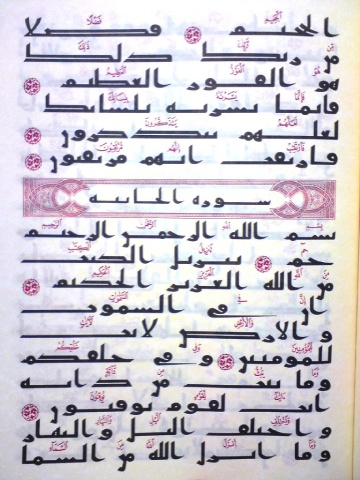 الجحيم ۝ فضلا
من ربك ذلك
هو الفوز العظيم ۝
فإنما يسرنه بلسانك
لعلهم يتذكرون ۝
فارتقب إنهم مرتقبون ۝
سورة الجاثية
بسم الله الرحمن الرحيم
حم ۝ تنزيل الكتب
من الله العزيز الحكيم ۝
إن في السموت
والأرض لآيت
للمؤمنين ۝ وفي خلقكم
وما يبث من دابة
آيت لقوم يوقنون ۝
واختلف اليل والنهار
وما أنزل الله من السما